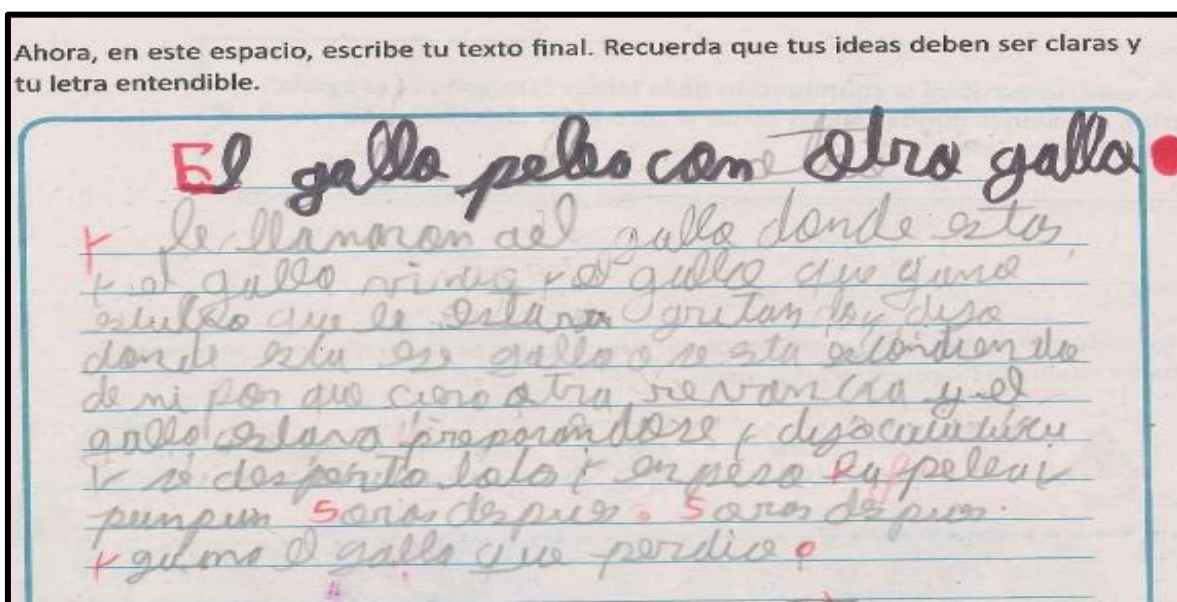 Ahora, en este espacio, escribe tu texto final. Recuerda que tus ideas deben ser claras y
tu letra entendible.
El gallo peleo con otro gallo
le llamaron ael gallo donde estas
y el gallo vinio y el gallo que gano
estubo que le estavan gritando y diso
donde esta ese gallo se esta escondiendo
de mi por que ciero otra revancha y el
gallo estava preparandose y dijo
y se desperto lalo y enpeso la pelea y
pumpum 5 oras despues. 5 oras despues.
y gano el gallo que perdio.